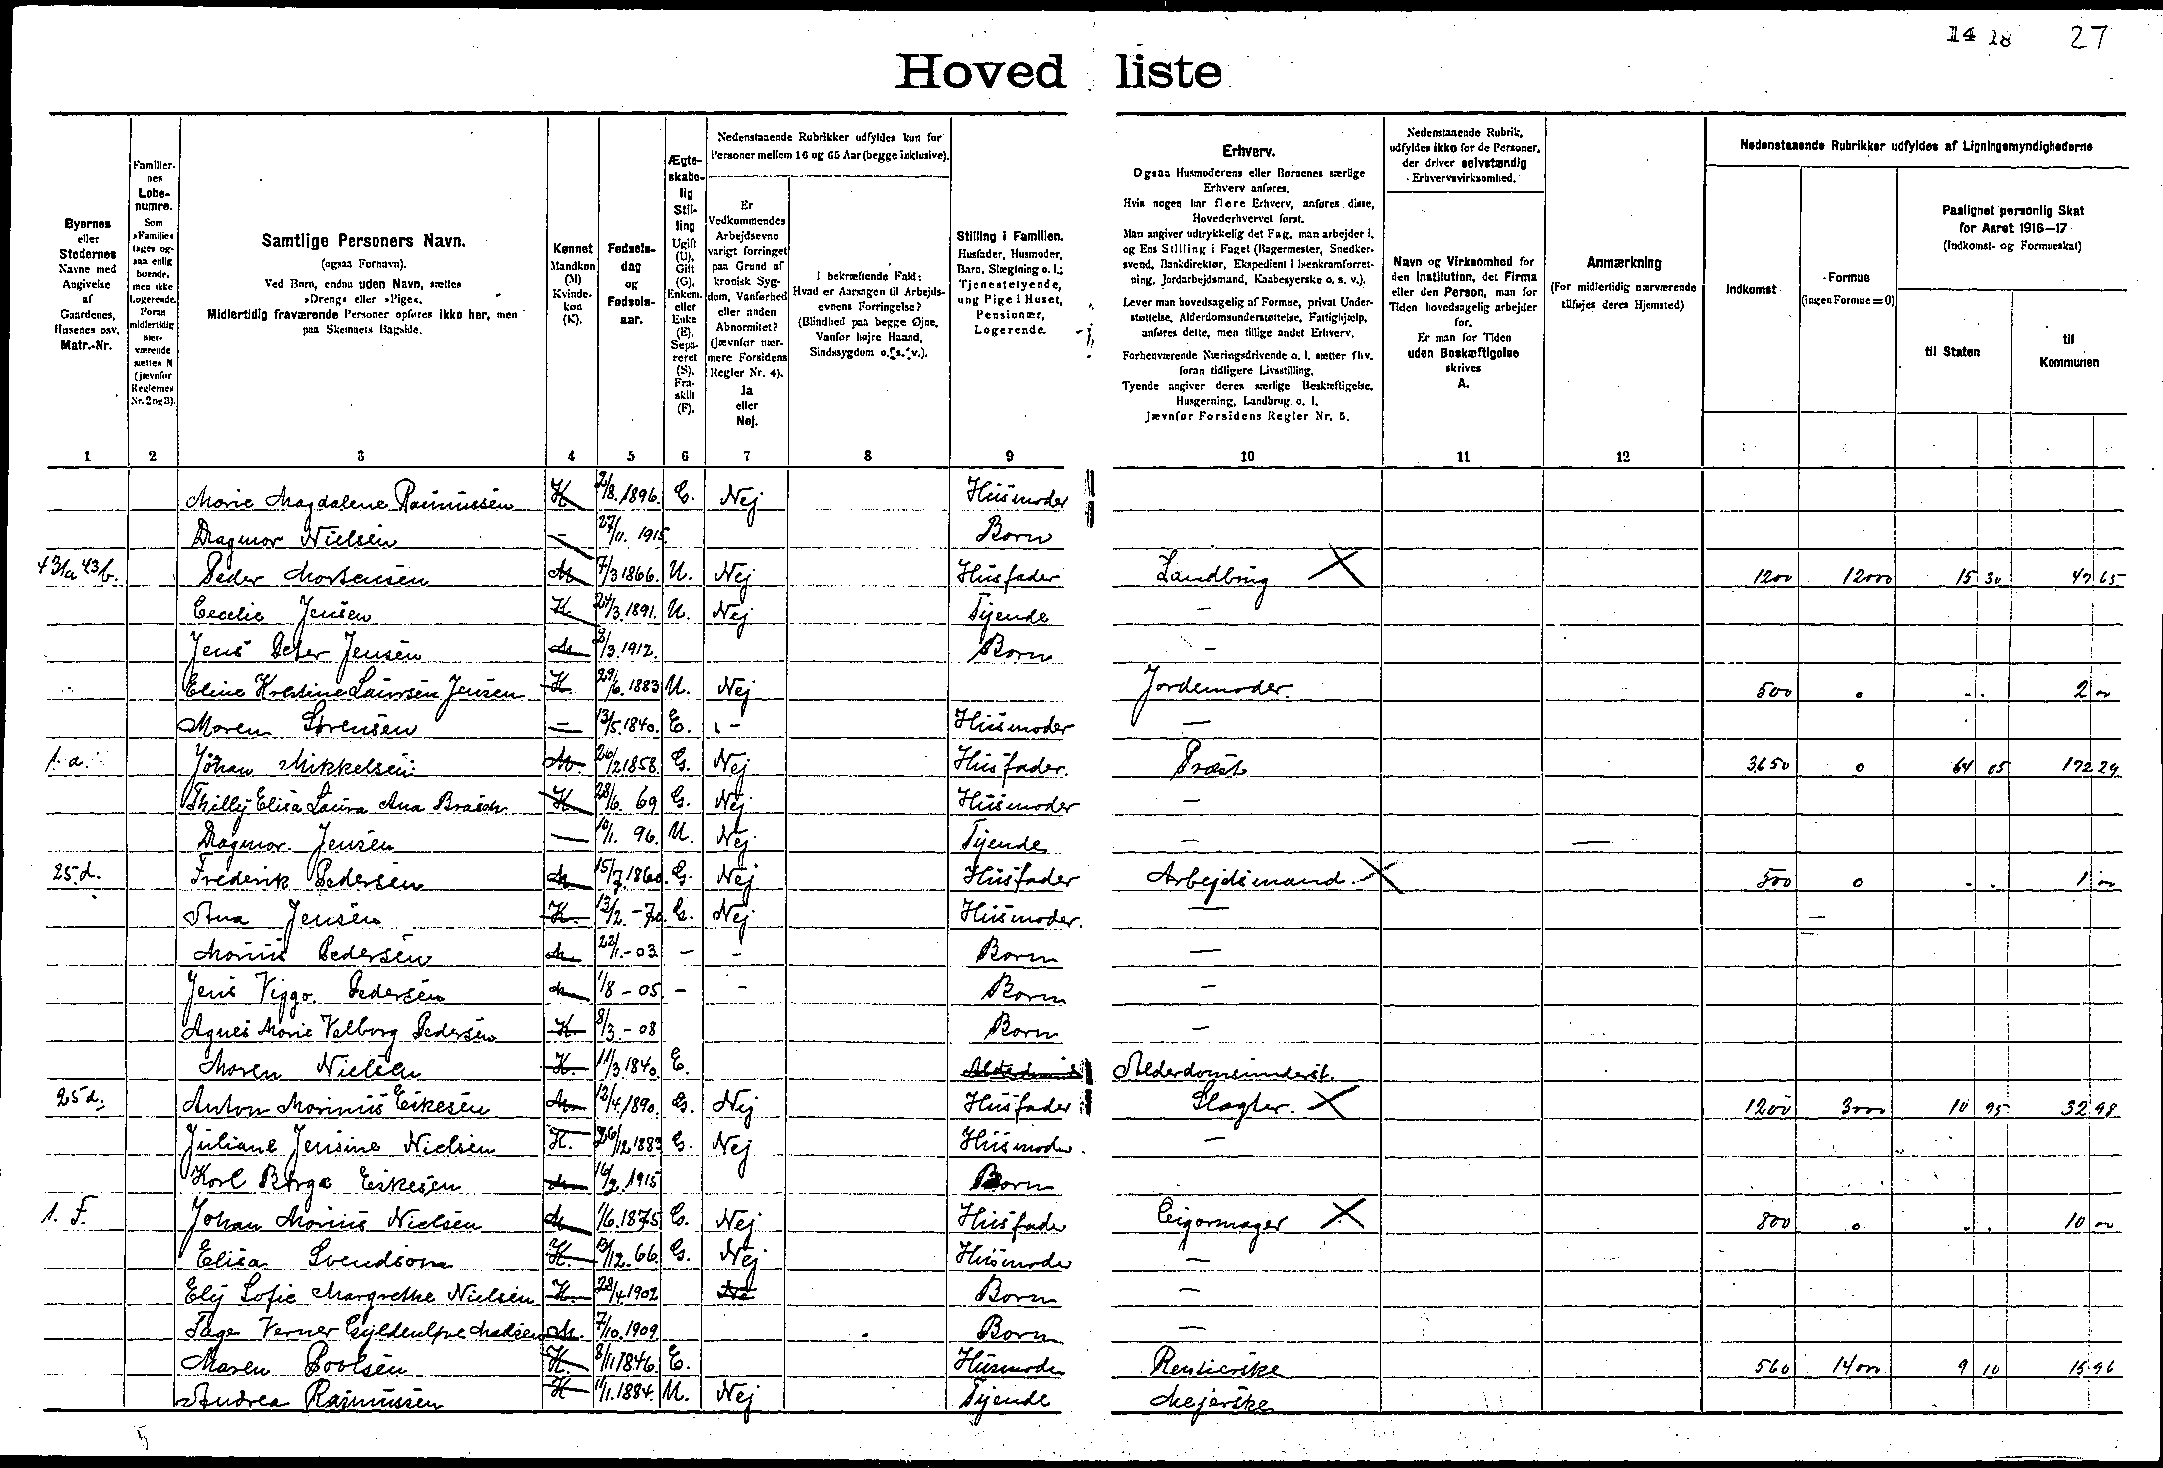 14 18 27
Hoved liste
Byernes eller Stedernes Navne med Angivelse af Gaardenes, Husenes osv. Matr.-Nr.
Familier-nes Løbe-numre. Som »Familie« tages og-saa enlig boende, men ikke Logerende. Foran midlertidig nær-værende sættes N (jævnfør Reglernes Nr. 2 og 3).
Samtlige Personers Navn.
(ogsaa Fornavn).
Ved Børn, endnu uden Navn, sættes »Dreng« eller »Pige«.
Midlertidig fraværende Personer opføres ikke her, men paa Skemaets Bagside.
Kønnet Mandkøn (M) Kvinde-køn (K).
Fødsels-dag og Fødsels-aar.
Ægte-skabe-lig Stil-ling Ugift (U), Gift (G), Enkem. eller Enke (E), Sepa-reret (S), Fra-skilt (F).
Nedenstaaende Rubrikker udfyldes kun for Personer mellem 16 og 65 Aar (begge inklusive).
Er Vedkommendes Arbejdsevne varigt forringet paa Grund af kronisk Syg-dom, Vanførhed eller anden Abnormitet? (Jævnfør nær-mere Forsidens Regler Nr. 4). Ja eller Nej.
I bekræftende Fald: Hvad er Aarsagen til Arbejds-evnens Forringelse? (Blindhed paa begge Øjne, Vanfør højre Haand, Sindssygdom o. s. v.).
Stilling i Familien.
Husfader, Husmoder, Barn, Slægtning o. l.; Tjenestetyende, ung Pige i Huset, Pensionær, Logerende.
Erhverv.
Ogsaa Husmoderens eller Børnenes særlige Erhverv anføres.
Hvis nogen har flere Erhverv, anføres disse, Hovederhvervet først.
Man angiver udtrykkelig det Fag, man arbejder i, og Ens Stilling i Faget (Bagermester, Snedker-svend, Bankdirektør, Ekspedient i Isenkramforret-ning, Jordarbejdsmand, Kaabesyerske o. s. v.).
Lever man hovedsagelig af Formue, privat Under-støttelse, Alderdomsunderstøttelse, Fattighjælp, anføres dette, men tillige andet Erhverv.
Forhenværende Næringsdrivende o. l. sætter fhv. foran tidligere Livsstilling.
Tyende angiver deres særlige Beskæftigelse, Husgerning, Landbrug o. l.
Jævnfør Forsidens Regler Nr. 5.
Nedenstaaende Rubrik, udfyldes ikke for de Personer, der driver selvstændig Erhvervsvirksomhed.
Navn og Virksomhed for den Institution, det Firma eller den Person, man for Tiden hovedsagelig arbejder for.
Er man for Tiden uden Beskæftigelse skrives A.
Anmærkning
(For midlertidig nærværende tilføjes deres Hjemsted)
Nedenstaaende Rubrikker udfyldes af Ligningsmyndighederne
Indkomst
Formue (ingen Formue = 0)
Paalignet personlig Skat for Aaret 1916—17 (Indkomst- og Formueskat)
til Staten
til Kommunen
1 2 3 4 5 6 7 8 9 10 11 12
Marie Magdalene Rasmussen K 2/8. 1896. E. Nej Husmoder
Dagmar Nielsen — 27/11. 1915 Barn
43a 43b. Peder Mortensen M 7/3 1866. U. Nej Husfader Landbrug X 1200 12000 15 30 47 65
Cecelie Jensen K 24/3. 1891. U. Nej Tyende —
Jens Peter Jensen M /3. 1912. Barn —
Eline Kristine Laursen Jensen K 29/6. 1883 U. Nej Jordemoder. 500 0 . . 2 00
Maren Sørensen — 13/5. 1840. E. - Husmoder —
1. a. Johan Mikkelsen M. 24/2 1858. G. Nej Husfader. Præst 3650 0 64 05 172 29
Thilly Elisa Laura Ana Brasch K 28/6. 69 G. Nej Husmoder —
Dagmar. Jensen — 10/1. 96. U. Nej Tyende — —
25 d. Frederik Pedersen M 15/7. 1860. G. Nej Husfader Arbejdsmand. X 500 0 . . 1 00
Ana Jensen K. 13/2. - 70 G. Nej Husmoder. —
Marius Pedersen M 22/1. - 03 — - Barn —
Jens Viggo. Pedersen M 1/8 - 05 - - Barn —
Agnes Marie Valborg Pedersen K. 8/3. - 08 Barn —
Maren Nielsen K 11/3. 1840. E. Alderdomsunderst.
25 d. Anton Marinus Eskesen M. 12/4. 1890. G. Nej Husfader Slagter. X 1200 3000 10 95 32 98
Juliane Jensine Nielsen K. 26/12. 1883 G. Nej Husmoder. —
Karl Børge Eskesen M 14/2. 1915 Barn
1. F. Johan Marius Nielsen M 1/6. 1875 G. Nej Husfader Cigarmager X 800 0 . . 10 00
Elisa Svendsen K. /12. 66. G. Nej Husmoder —
Ely Sofie Margrethe Nielsen K. 28/4. 1902 Ne Barn —
Tage Verner Gyldenløve Madsen M. 7/10. 1909 Barn —
Maren Poulsen K 8/11 1846. E. Husmoder Rentierske 560 14000 9 10 15 96
Andrea Rasmussen K 11/1. 1884. U. Nej Tyende Mejerske
5